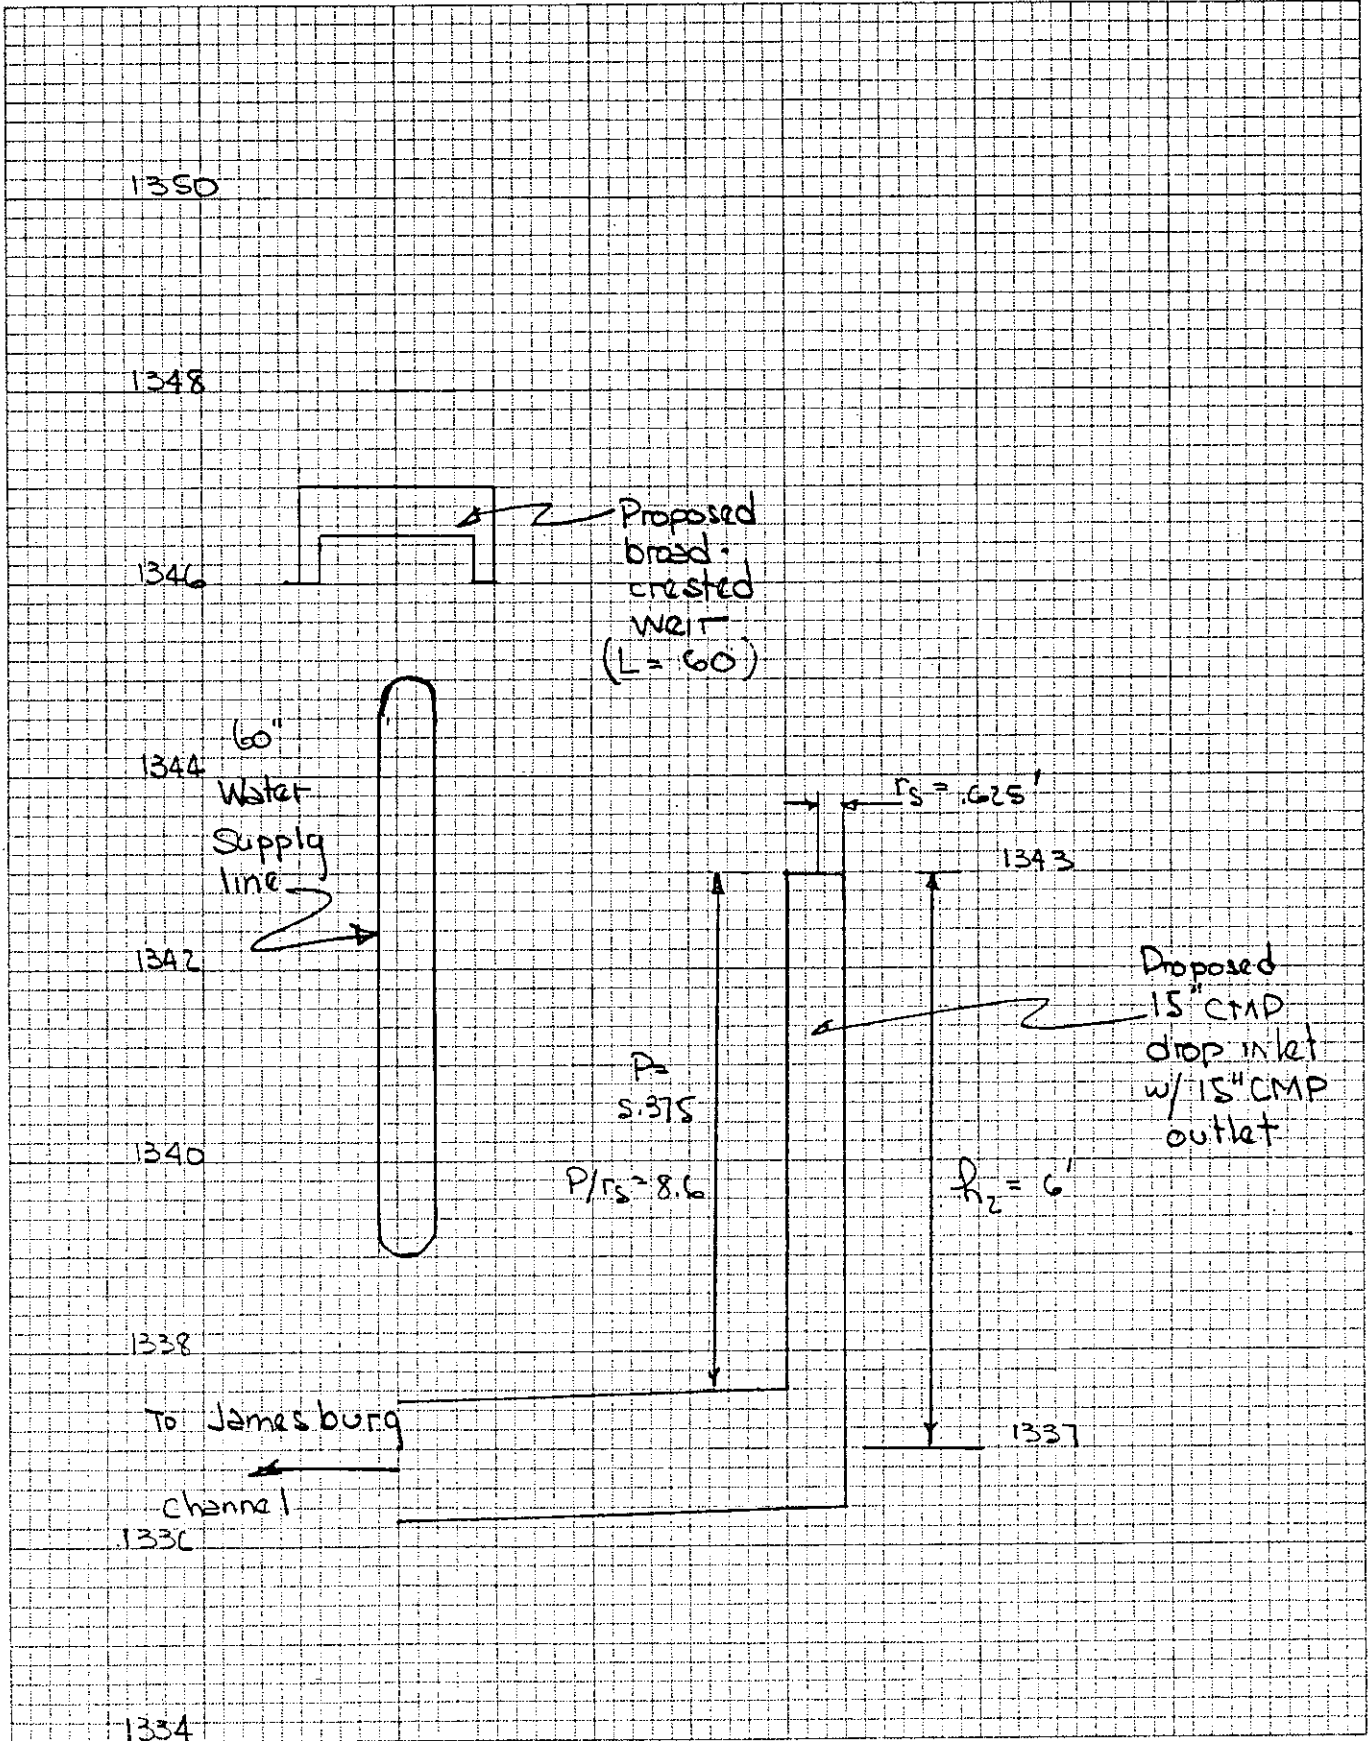 1350
1348
Proposed
broad-
crested
weir
(L = 60')
1346
60"
1344
Water
Supply
line
rs = .625'
1343
1342
Proposed
15" CMP
drop inlet
w/ 15" CMP
outlet
P=
5.375
1340
P/rs = 8.6
h2 = 6'
1338
To Jamesburg
channel
1337
1336
1334